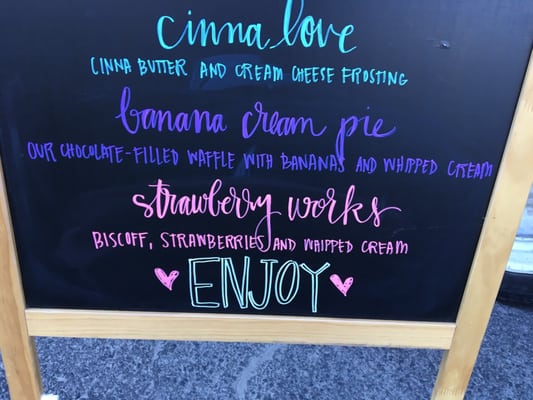 cinna love
CINNA BUTTER AND CREAM CHEESE FROSTING
banana cream pie
OUR CHOCOLATE-FILLED WAFFLE WITH BANANAS AND WHIPPED CREAM
strawberry works
BISCOFF, STRAWBERRIES AND WHIPPED CREAM
ENJOY